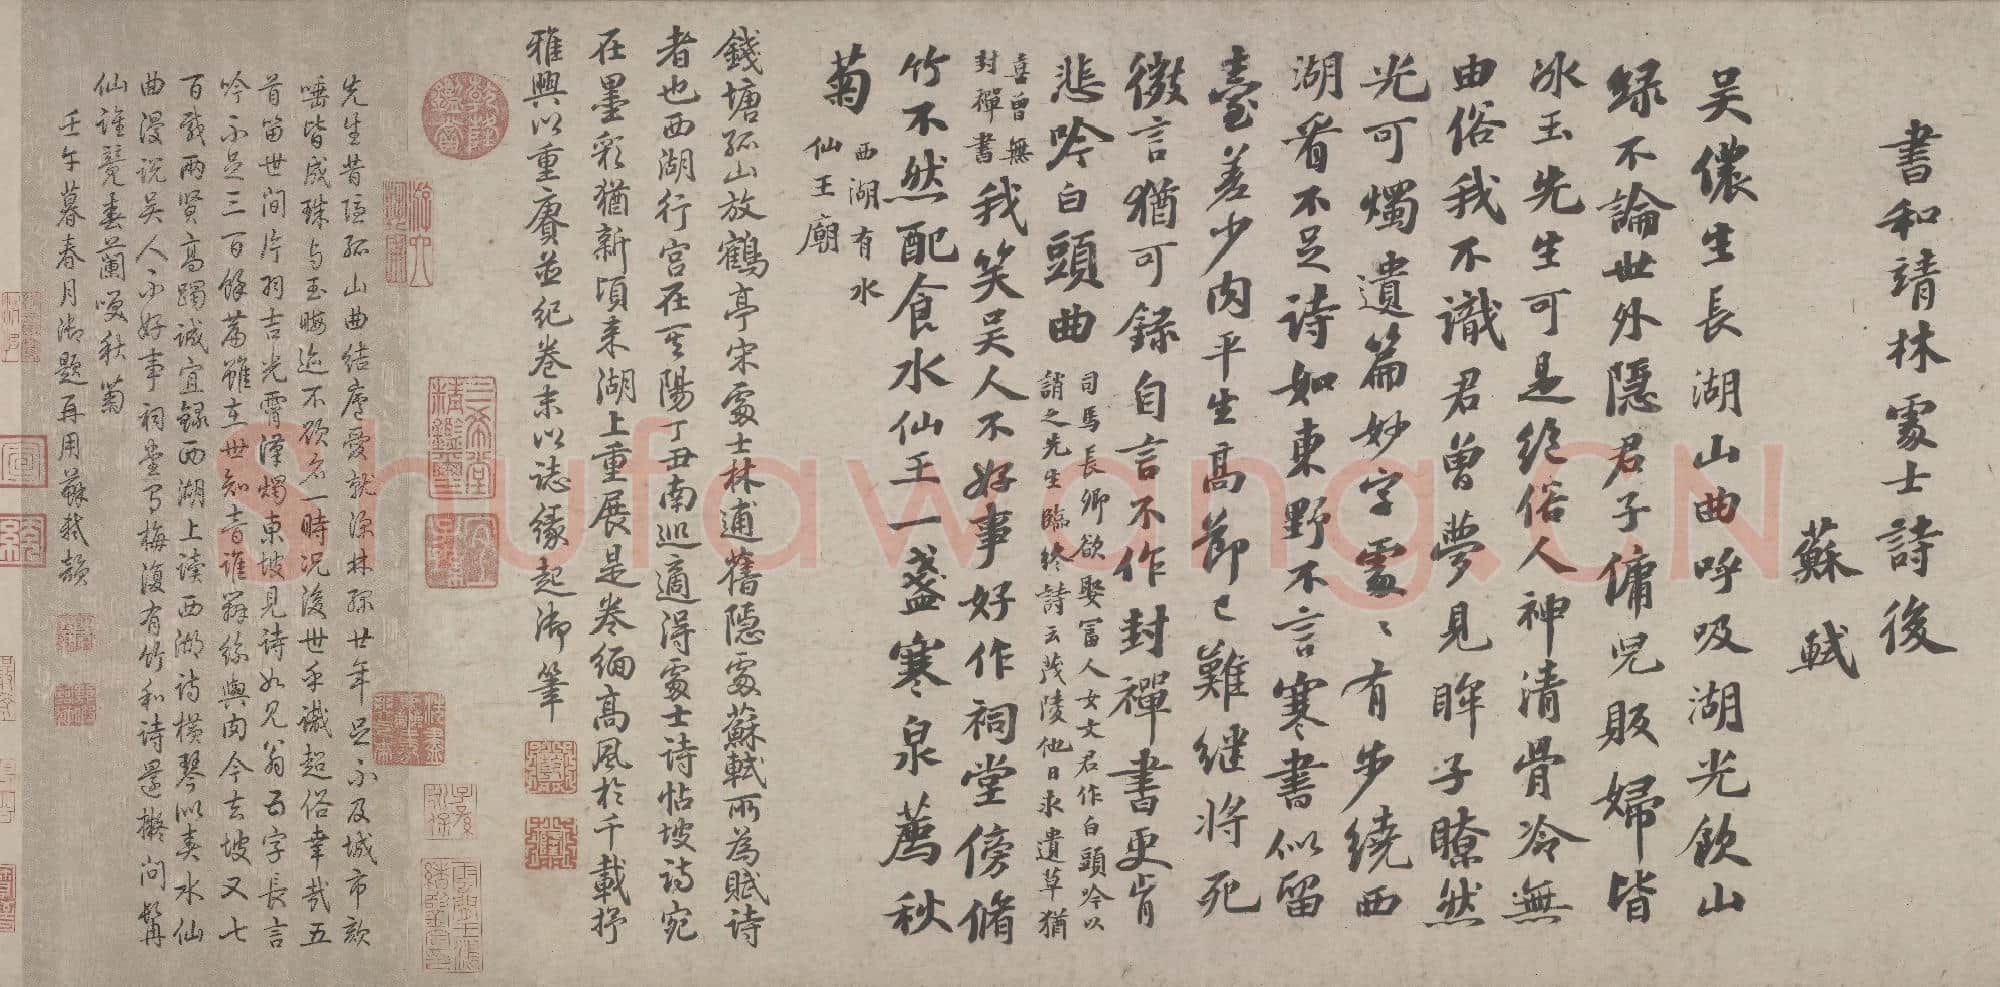 書和靖林處士詩後
蘇軾
吴儂生長湖山曲呼吸湖光飲山
緑不論世外隱君子傭兒販婦皆
冰玉先生可是絶俗人神清骨冷無
由俗我不識君曾夢見眸子瞭然
光可燭遺篇妙字處〻有步繞西
湖看不足詩如東野不言寒書似留
臺差少肉平生高節已難繼將死
微言猶可録自言不作封禪書更肯
悲吟白頭曲
司馬長卿欲娶富人女文君作白頭吟以
誚之先生臨終詩云茂陵他日求遺草猶
喜曾無
封禪書
我笑吴人不好事好作祠堂傍脩
竹不然配食水仙王一盞寒泉薦秋
菊
西湖有水
仙王廟
錢塘孤山放鶴亭宋處士林逋舊隱處蘇軾所為賦詩
者也西湖行宫在其陽丁丑南巡適得處士詩帖坡詩宛
在墨彩猶新頃来湖上重展是卷緬高風於千載抒
雅興以重賡並紀卷末以誌緣起御筆
先生昔隱孤山曲結廬愛就深林緑廿年足不及城市欬
唾皆成珠与玉晦迹不顧名一時況後世乎誠超俗幸哉五
首留世間片羽吉光霄漢燭東坡見詩如見翁百字長言
吟不足三百餘篇雖在世知音誰辨絲與肉今去坡又七
百載兩賢高躅誠宜録西湖上讀西湖詩横琴似奏水仙
曲漫説吴人不好事祠堂寫梅復有竹和詩還擬問髯
仙誰覺春蘭嗅秋菊
壬午暮春月御題再用蘇軾韻
乾隆鑑賞
三希堂精鑑璽
宜子孫
shufawang.CN